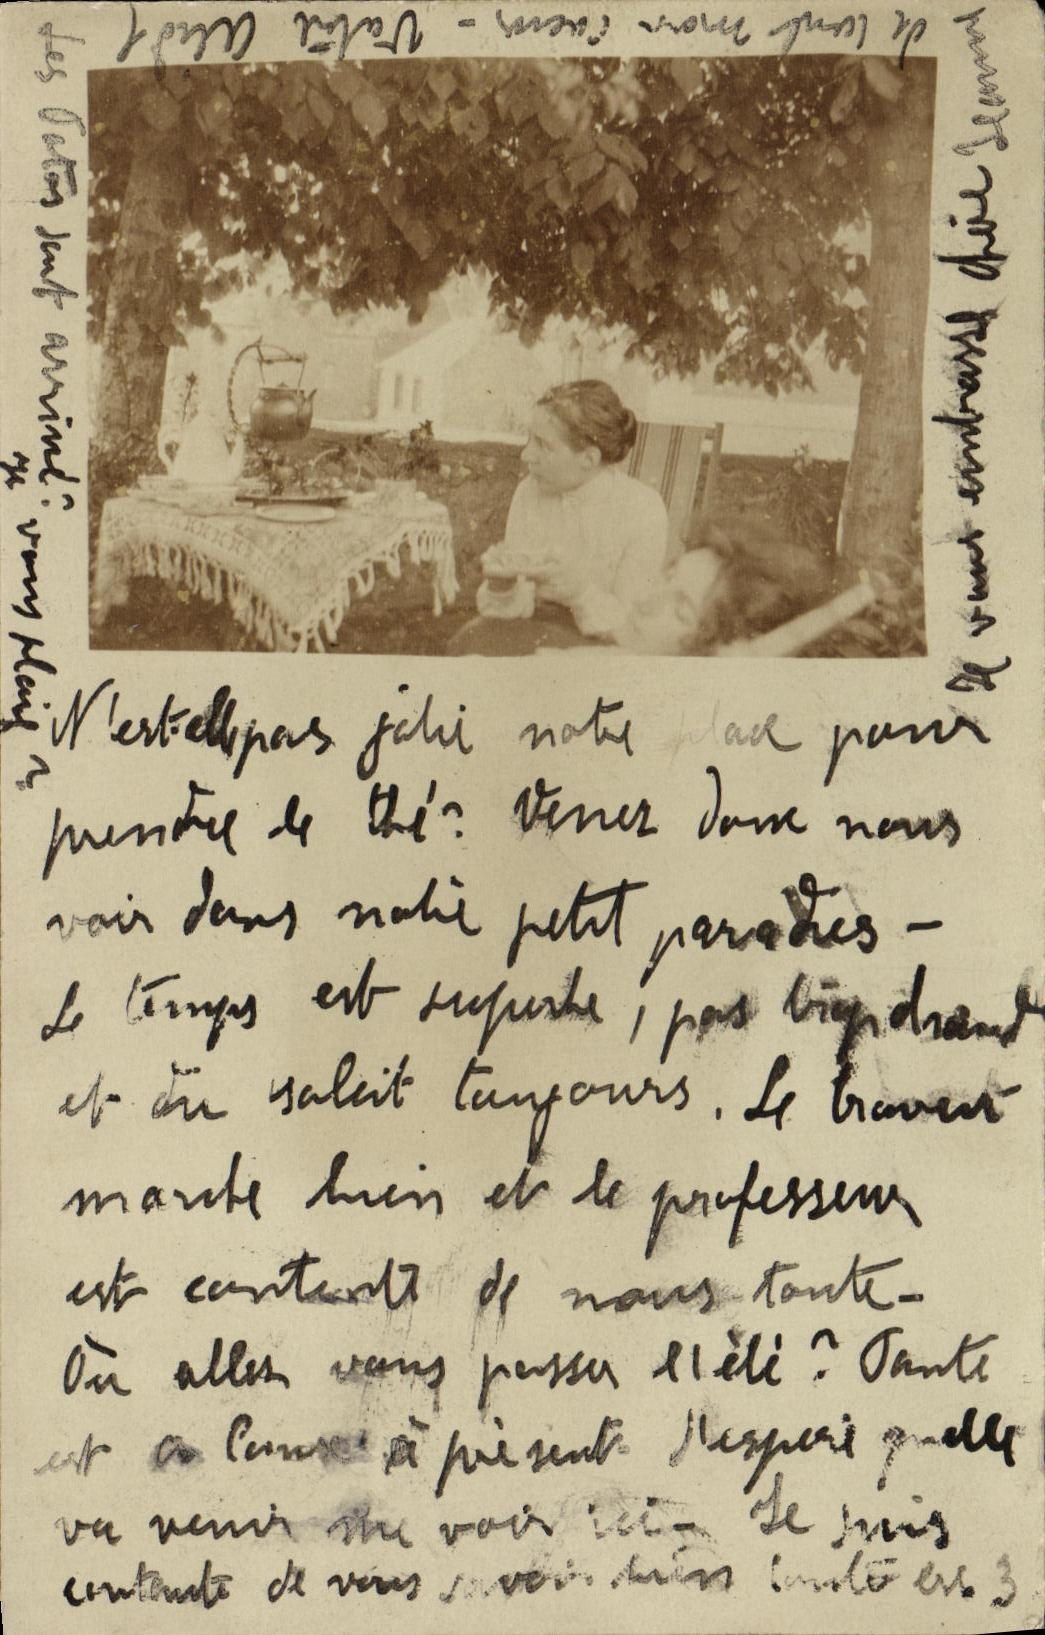 N'est-elle pas jolie notre place pour
prendre le thé? Venez donc nous
voir dans notre petit paradies -
Le temps est superbe, pas trop chaud
et du soleil toujours. Le travail
marche bien et le professeur
est content de nous toute -
Où allez vous passer l'été? Tante
est a à présent. J'espère qu'elle
va venir me voir ici - Je suis
contente de vous savoir bien toute les 3
Je vous embrasse chère Jeanne
de tout mon coeur - Votre
Les sont arrivé? Je vous plait?